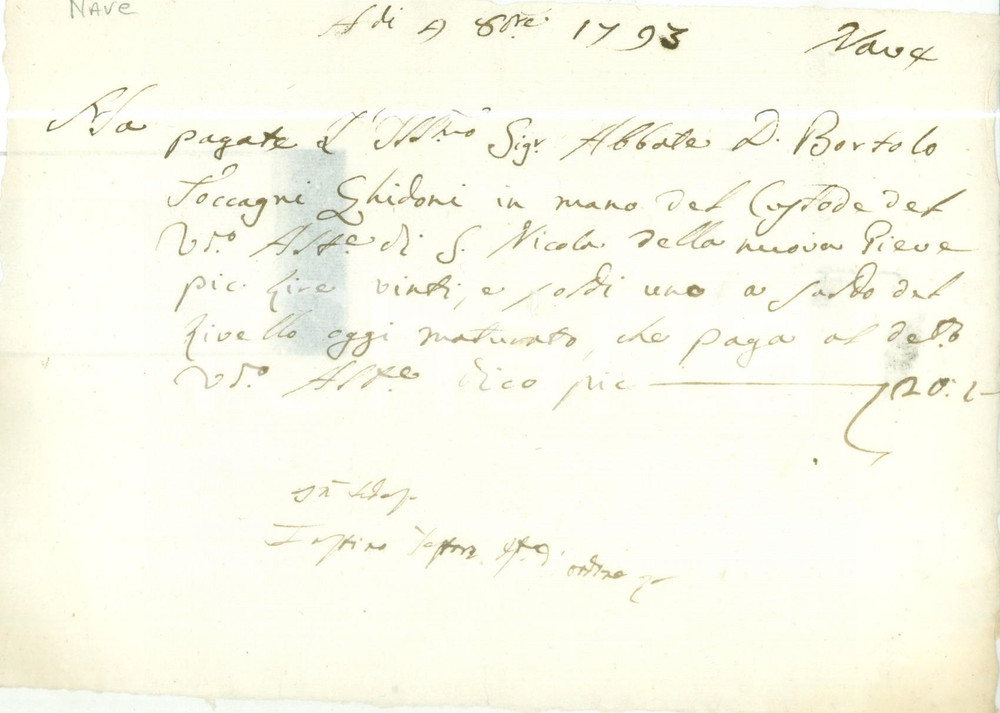 Nave
Adi 9 8bre 1793 Nave
pagate l'Illmo Sigr Abbate D. Bortolo
Soccagni Ghidoni in mano del Custode del
V.do Alte di S. Nicola della nuova Pieve
pic. Lire vinti, e soldi uno a saldo del
Livello oggi maturato, che paga al detto
V.do Alte dico pic 20:1
Faustino ordine